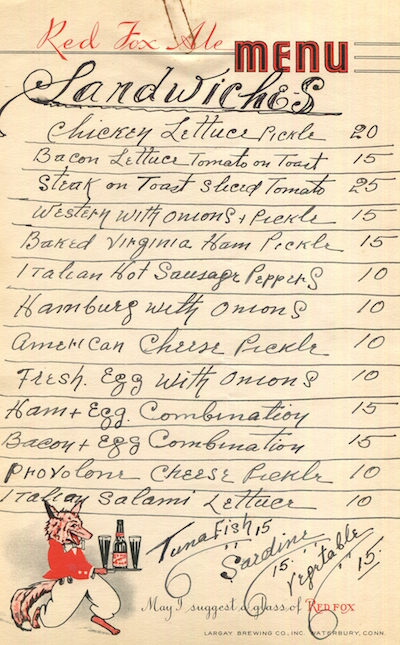 Red Fox Ale MENU
Sandwiches
Chicken Lettuce Pickle 20
Bacon Lettuce Tomato on Toast 15
Steak on Toast Sliced Tomato 25
Western with Onions + Pickle 15
Baked Virginia Ham Pickle 15
Italian Hot Sausage Peppers 10
Hamburg with Onions 10
American Cheese Pickle 10
Fresh. Egg with Onions 10
Ham + Egg. Combination 15
Bacon + Egg Combination 15
Provolone Cheese Pickle 10
Italian Salami Lettuce 10
Tuna Fish 15
Sardine " " 15.
Vegetable " " 15.
May I suggest a glass of RED FOX
LARGAY BREWING CO., INC. WATERBURY, CONN.